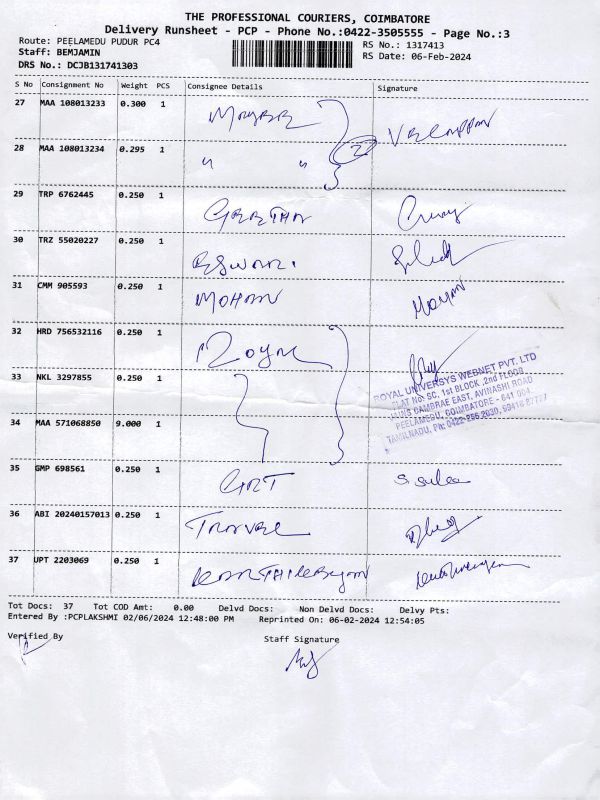 THE PROFESSIONAL COURIERS, COIMBATORE
Delivery Runsheet - PCP - Phone No.:0422-3505555 - Page No.:3
Route: PEELAMEDU PUDUR PC4
Staff: BEMJAMIN
DRS No.: DCJB131741303
RS No.: 1317413
RS Date: 06-Feb-2024
S No Consignment No Weight PCS Consignee Details Signature
27 MAA 108013233 0.300 1
28 MAA 108013234 0.295 1 " " 2
29 TRP 6762445 0.250 1
30 TRZ 55020227 0.250 1
31 CMM 905593 0.250 1 MOHAN
32 HRD 756532116 0.250 1
33 NKL 3297855 0.250 1
34 MAA 571068850 9.000 1
ROYAL UNIVERSYS WEBNET PVT. LTD
FLAT No. 5C, 1st BLOCK, 2nd FLOOR
JAINS CAMBRAE EAST, AVINASHI ROAD
PEELAMEDU, COIMBATORE - 641 004.
TAMILNADU, Ph: 0422-256
35 GMP 698561 0.250 1
36 ABI 20240157013 0.250 1
37 UPT 2203069 0.250 1
Tot Docs: 37 Tot COD Amt: 0.00 Delvd Docs: Non Delvd Docs: Delvy Pts:
Entered By :PCPLAKSHMI 02/06/2024 12:48:00 PM Reprinted On: 06-02-2024 12:54:05
Verified By Staff Signature